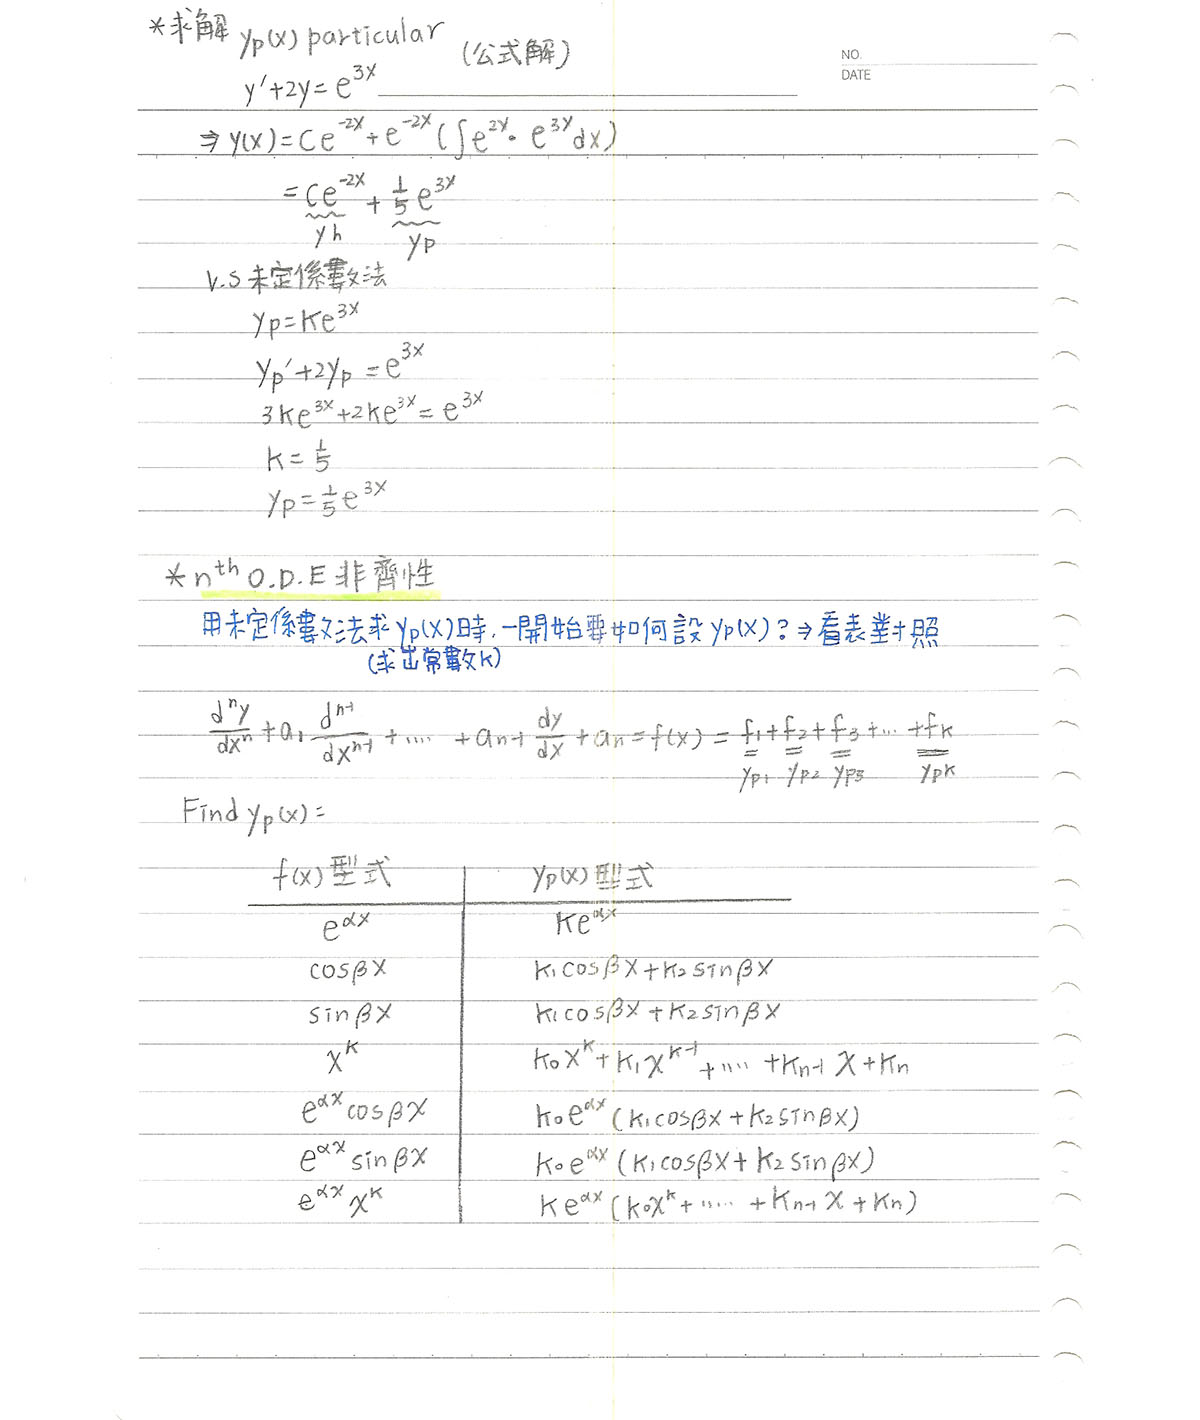 *求解 yp(x) particular
(公式解)
NO.
DATE
y'+2y=e^3x
⇒ y(x)=Ce^-2x+e^-2x(∫e^2x·e^3x dx)
=Ce^-2x+1/5e^3x
yh yp
V.S 未定係數法
yp=ke^3x
yp'+2yp=e^3x
3ke^3x+2ke^3x=e^3x
k=1/5
yp=1/5e^3x
*n^th O.D.E 非齊性
用未定係數法求yp(x)時,一開始要如何設yp(x)?⇒看表對照
(求出常數k)
d^n y/dx^n+a1 d^n-1/dx^n-1+....+an-1 dy/dx+an=f(x)=f1+f2+f3+...+fk
yp1 yp2 yp3 ypk
Find yp(x)=
f(x)型式 yp(x)型式
e^αx ke^αx
cosβx k1cosβx+k2sinβx
sinβx k1cosβx+k2sinβx
x^k k0x^k+k1x^k-1+....+kn-1 x+kn
e^αx cosβx k0e^αx(k1cosβx+k2sinβx)
e^αx sinβx k0e^αx(k1cosβx+k2sinβx)
e^αx x^k ke^αx(k0x^k+.....+kn-1 x+kn)